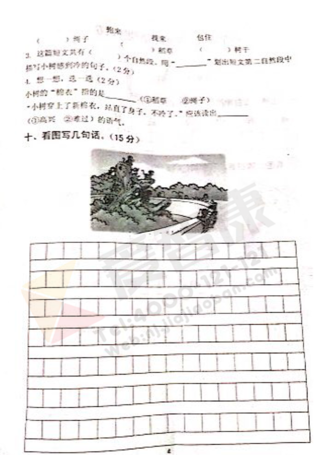 抱来 找来 包住
（ ）绳子 （ ）稻草 （ ）树干
3. 这篇短文共有（ ）个自然段。用“______”划出短文第二自然段中
描写小树感到冷的句子。（2分）
4. 想一想，选一选（2分）
小树的“棉衣”指的是______（①稻草 ②绳子）
“小树穿上了新棉衣，站直了身子，不冷了。”应该读出______
（①高兴 ②难过）的语气。
十、看图写几句话。（15分）
智康
Tel:4000-121-121
4